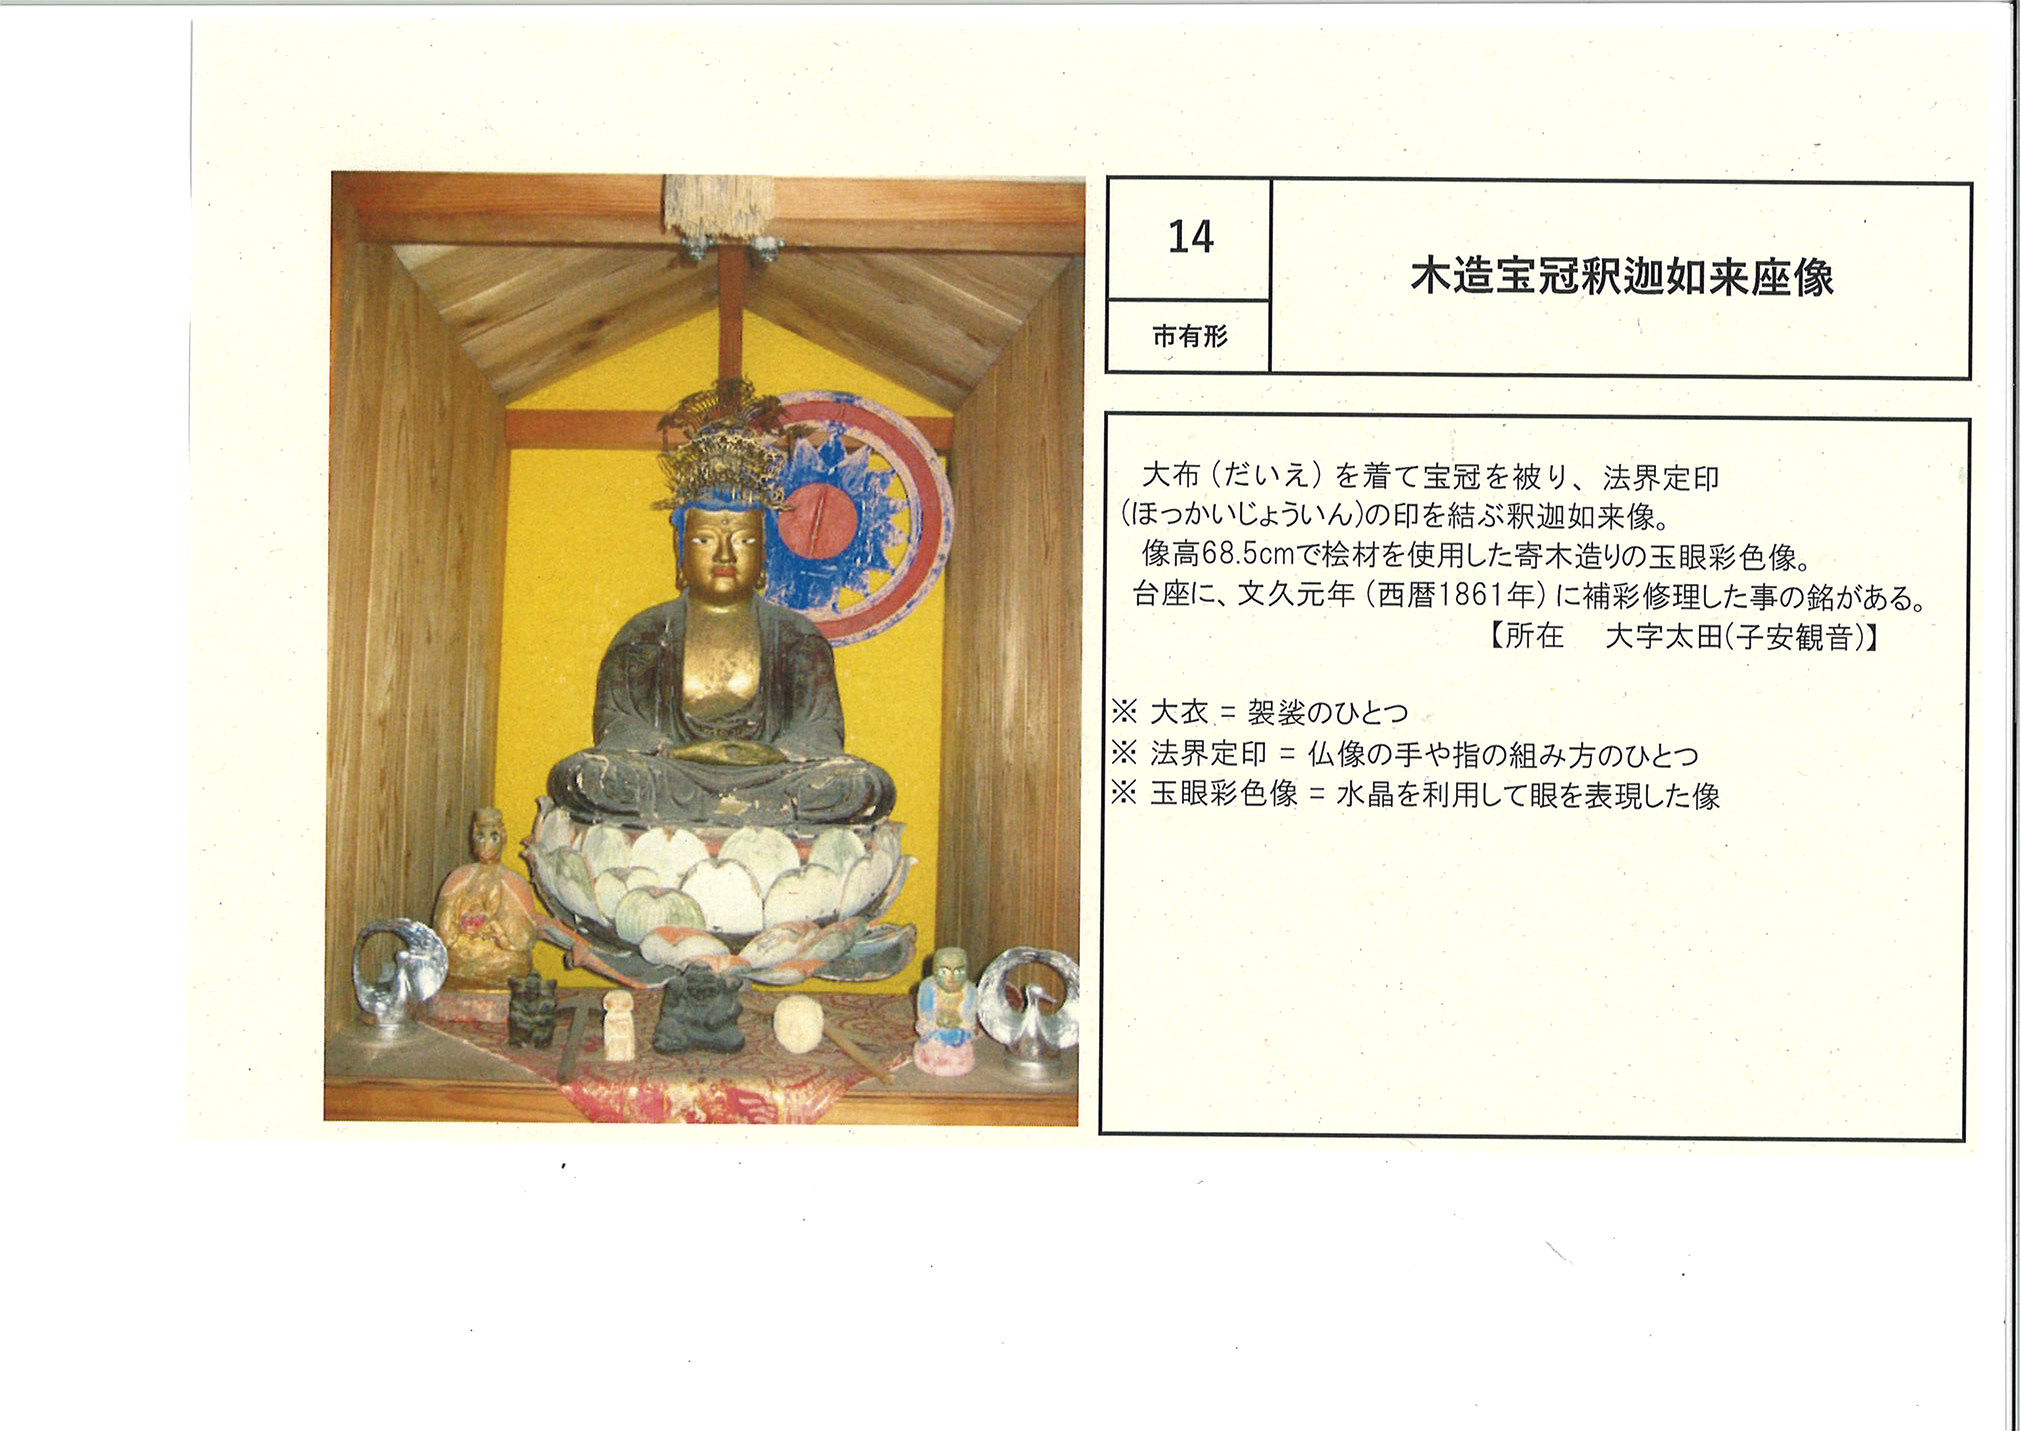 14
市有形
木造宝冠釈迦如来座像
大布（だいえ）を着て宝冠を被り、法界定印
(ほっかいじょういん)の印を結ぶ釈迦如来像。
像高68.5cmで桧材を使用した寄木造りの玉眼彩色像。
台座に、文久元年（西暦1861年）に補彩修理した事の銘がある。
【所在　大字太田(子安観音)】
※ 大衣 = 袈裟のひとつ
※ 法界定印 = 仏像の手や指の組み方のひとつ
※ 玉眼彩色像 = 水晶を利用して眼を表現した像